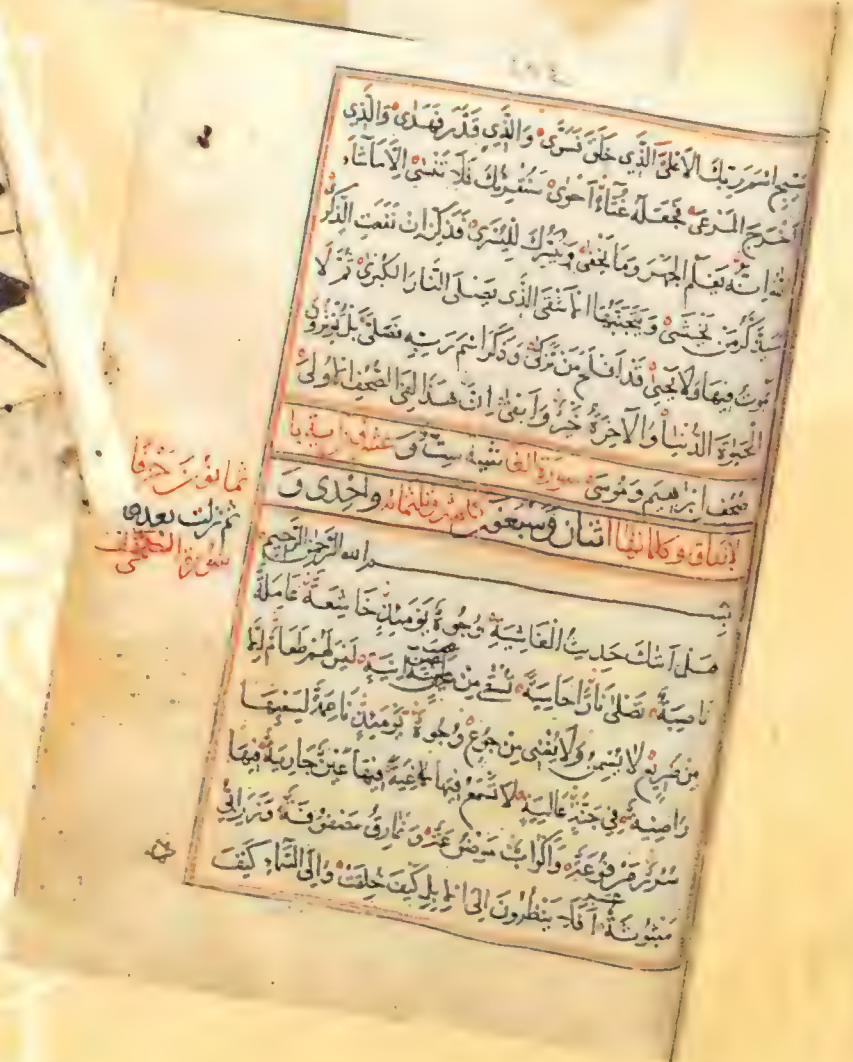 سَبِّحِ اسْمَ رَبِّكَ الْاَعْلَىَ الَّذِي خَلَقَ فَسَوّٰى وَالَّذِي قَدَّرَ فَهَدٰى وَالَّذِي
اَخْرَجَ الْمَرْعٰى فَجَعَلَهُ غُثَآءً اَحْوٰى سَنُقْرِئُكَ فَلَا تَنْسٰى اِلَّا مَا شَآءَ
اللهُ اِنَّهُ يَعْلَمُ الْجَهْرَ وَمَا يَخْفٰى وَنُيَسِّرُكَ لِلْيُسْرٰى فَذَكِّرْ اِنْ نَفَعَتِ الذِّكْرٰى
سَيَذَّكَّرُ مَنْ يَخْشٰى وَيَتَجَنَّبُهَا الْاَشْقَى الَّذِي يَصْلَى النَّارَ الْكُبْرٰى ثُمَّ لَا
يَمُوتُ فِيهَا وَلَا يَحْيٰى قَدْ اَفْلَحَ مَنْ تَزَكّٰى وَذَكَرَ اسْمَ رَبِّهِ فَصَلّٰى بَلْ تُؤْثِرُونَ
الْحَيٰوةَ الدُّنْيَا وَالْآخِرَةُ خَيْرٌ وَاَبْقٰى اِنَّ هٰذَا لَفِي الصُّحُفِ الْاُولٰى
صُحُفِ اِبْرٰهِيمَ وَمُوسٰى سورة الغاشية ست وعشرون اية با
لاتفاق وكلماتها اثنان وتسعون وثلثمائة واحدى و
بِسْمِ اللهِ الرَّحْمٰنِ الرَّحِيمِ
هَلْ اَتٰىكَ حَدِيثُ الْغَاشِيَةِ وُجُوهٌ يَوْمَئِذٍ خَاشِعَةٌ عَامِلَةٌ
نَاصِبَةٌ تَصْلٰى نَارًا حَامِيَةً تُسْقٰى مِنْ عَيْنٍ اٰنِيَةٍ لَيْسَ لَهُمْ طَعَامٌ اِلَّا
مِنْ ضَرِيعٍ لَا يُسْمِنُ وَلَا يُغْنِي مِنْ جُوعٍ وُجُوهٌ يَوْمَئِذٍ نَاعِمَةٌ لِسَعْيِهَا
رَاضِيَةٌ فِي جَنَّةٍ عَالِيَةٍ لَا تَسْمَعُ فِيهَا لَاغِيَةً فِيهَا عَيْنٌ جَارِيَةٌ فِيهَا
سُرُرٌ مَرْفُوعَةٌ وَاَكْوَابٌ مَوْضُوعَةٌ وَنَمَارِقُ مَصْفُوفَةٌ وَزَرَابِيُّ
مَبْثُوثَةٌ اَفَلَا يَنْظُرُونَ اِلَى الْاِبِلِ كَيْفَ خُلِقَتْ وَاِلَى السَّمَآءِ كَيْفَ
ثمانون حرفا
ثم نزلت بعده
سورة الكهف